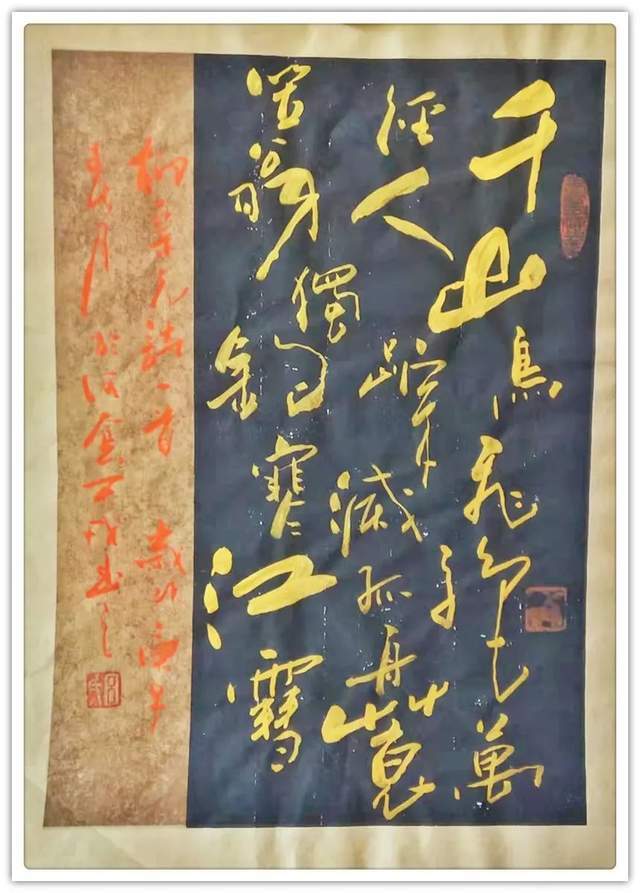 千山鳥飛絕萬
徑人蹤滅孤舟蓑
笠翁獨釣寒江雪
柳宗元詩一首 歲次午
月於書之